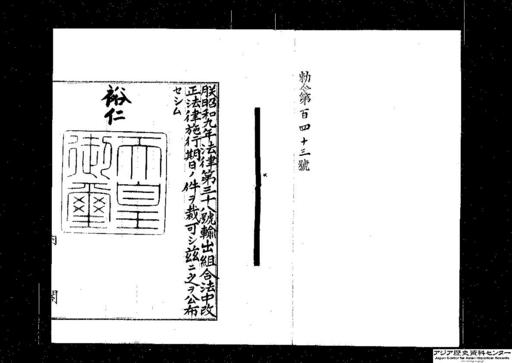 勅令第百四十三號
朕昭和九年法律第三十八號輸出組合法中改
正法律施行期日ノ件ヲ裁可シ茲ニ之ヲ公布
セシム
裕仁
天皇
御璽
内
閣
アジア歴史資料センター
Japan Center for Asian Historical Records